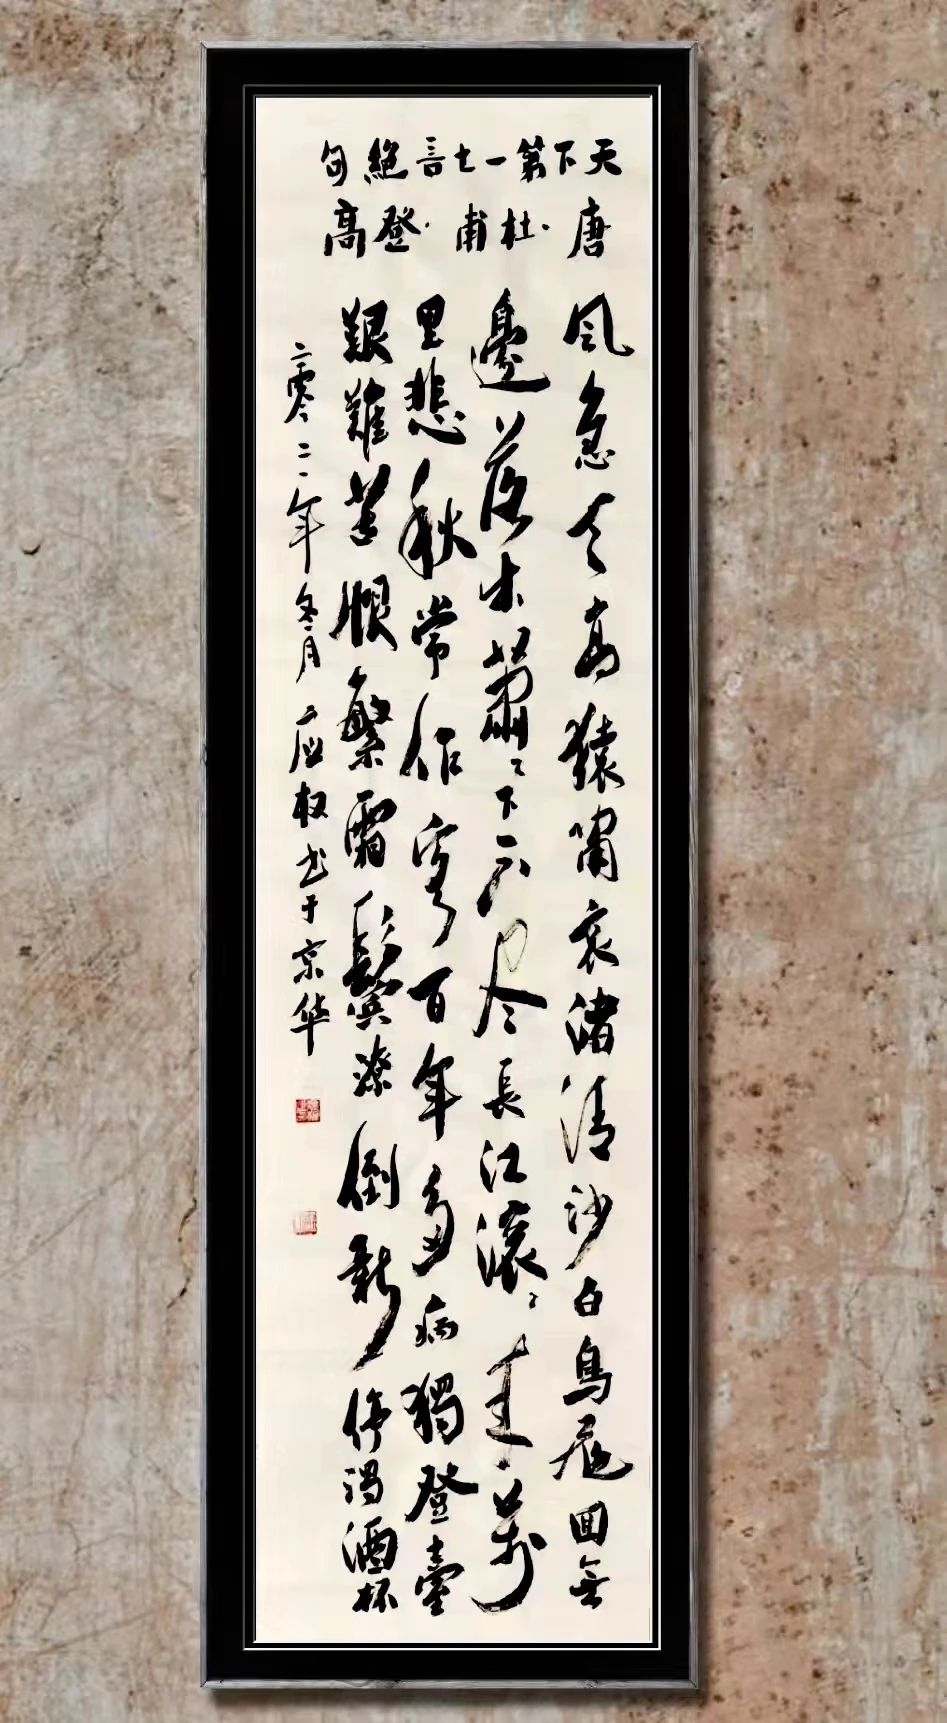 天下第一七言絕句
唐·杜甫·登高
风急天高猿嘯哀渚清沙白鳥飛囬無
邊落木蕭〻下不尽長江滚〻来萬
里悲秋常作客百年多病獨登臺
艱難苦恨繁霜鬢潦倒新停濁酒杯
二零二一年冬月应权书于京华